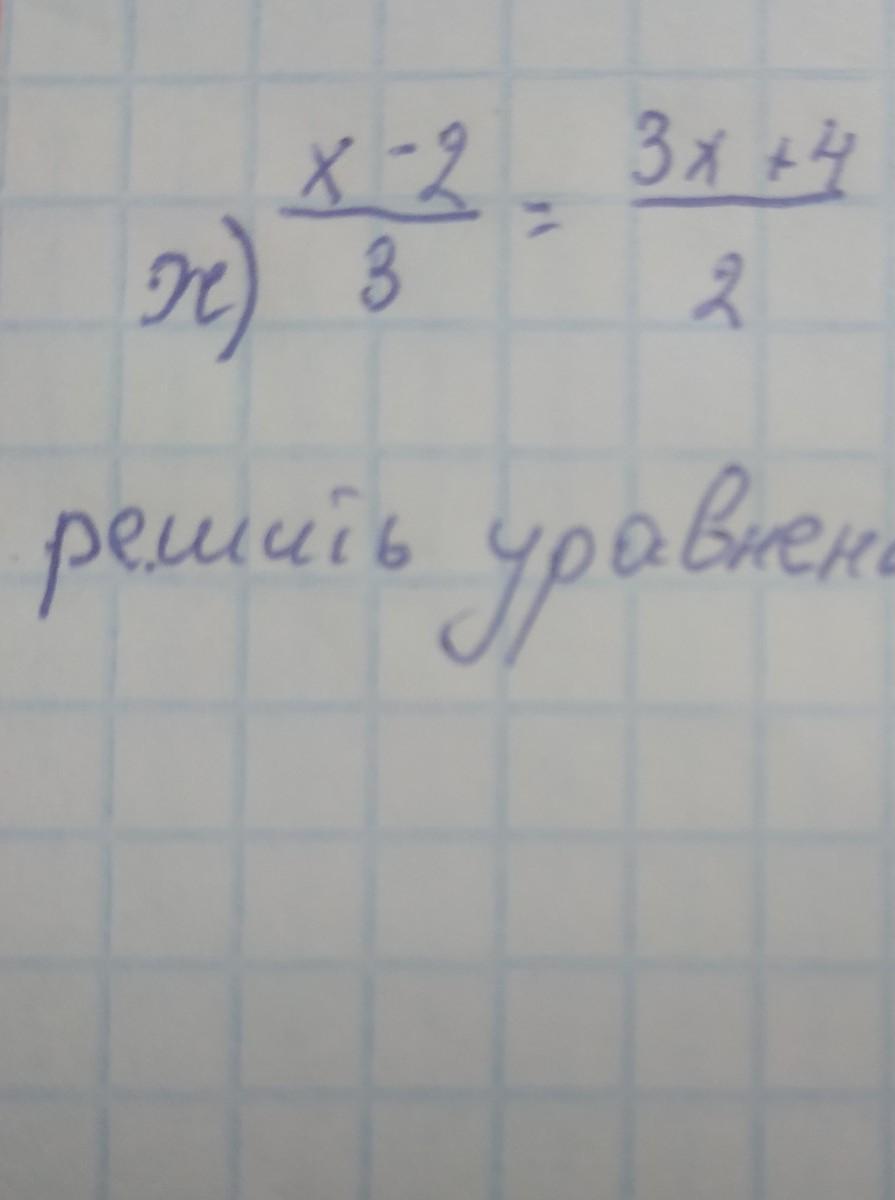 ж) x - 2 / 3 = 3x + 4 / 2
решить уравнен